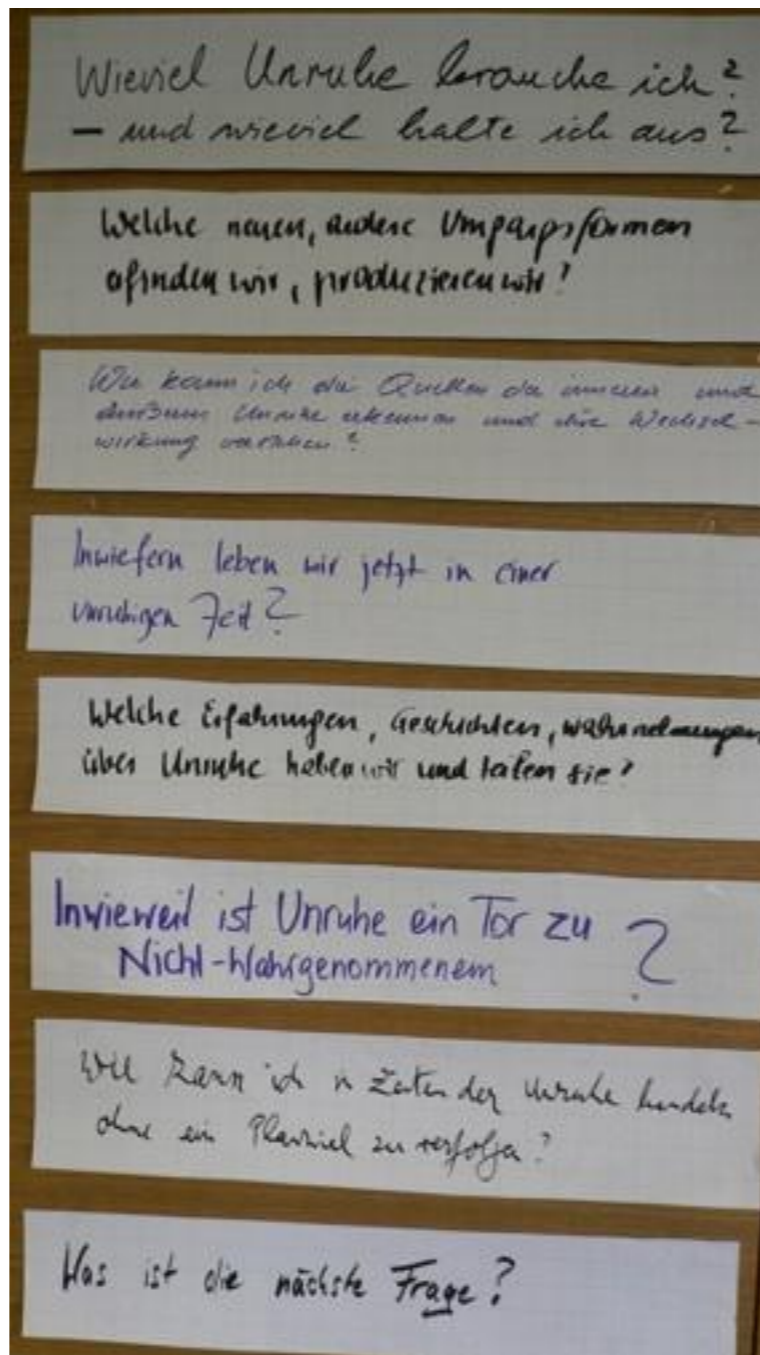 Wieviel Unruhe brauche ich?
– und wieviel halte ich aus?
Welche neuen, andere Umgangsformen
erfinden wir, produzieren wir?
Wie kann ich die Quellen der inneren und
äußeren Unruhe erkennen und ihre Wechsel-
wirkung verstehen?
Inwiefern leben wir jetzt in einer
unruhigen Zeit?
Welche Erfahrungen, Geschichten, Wahrnehmungen
über Unruhe haben wir und teilen sie?
Inwieweit ist Unruhe ein Tor zu
Nicht-Wahrgenommenem ?
Wie kann ich in Zeiten der Unruhe handeln
ohne ein Planziel zu verfolgen?
Was ist die nächste Frage?